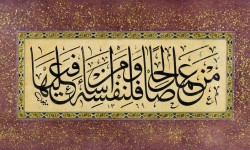 مَنْ عَمِلَ صَالِحًا فَلِنَفْسِهِ وَمَنْ أَسَاءَ فَعَلَيْهَا